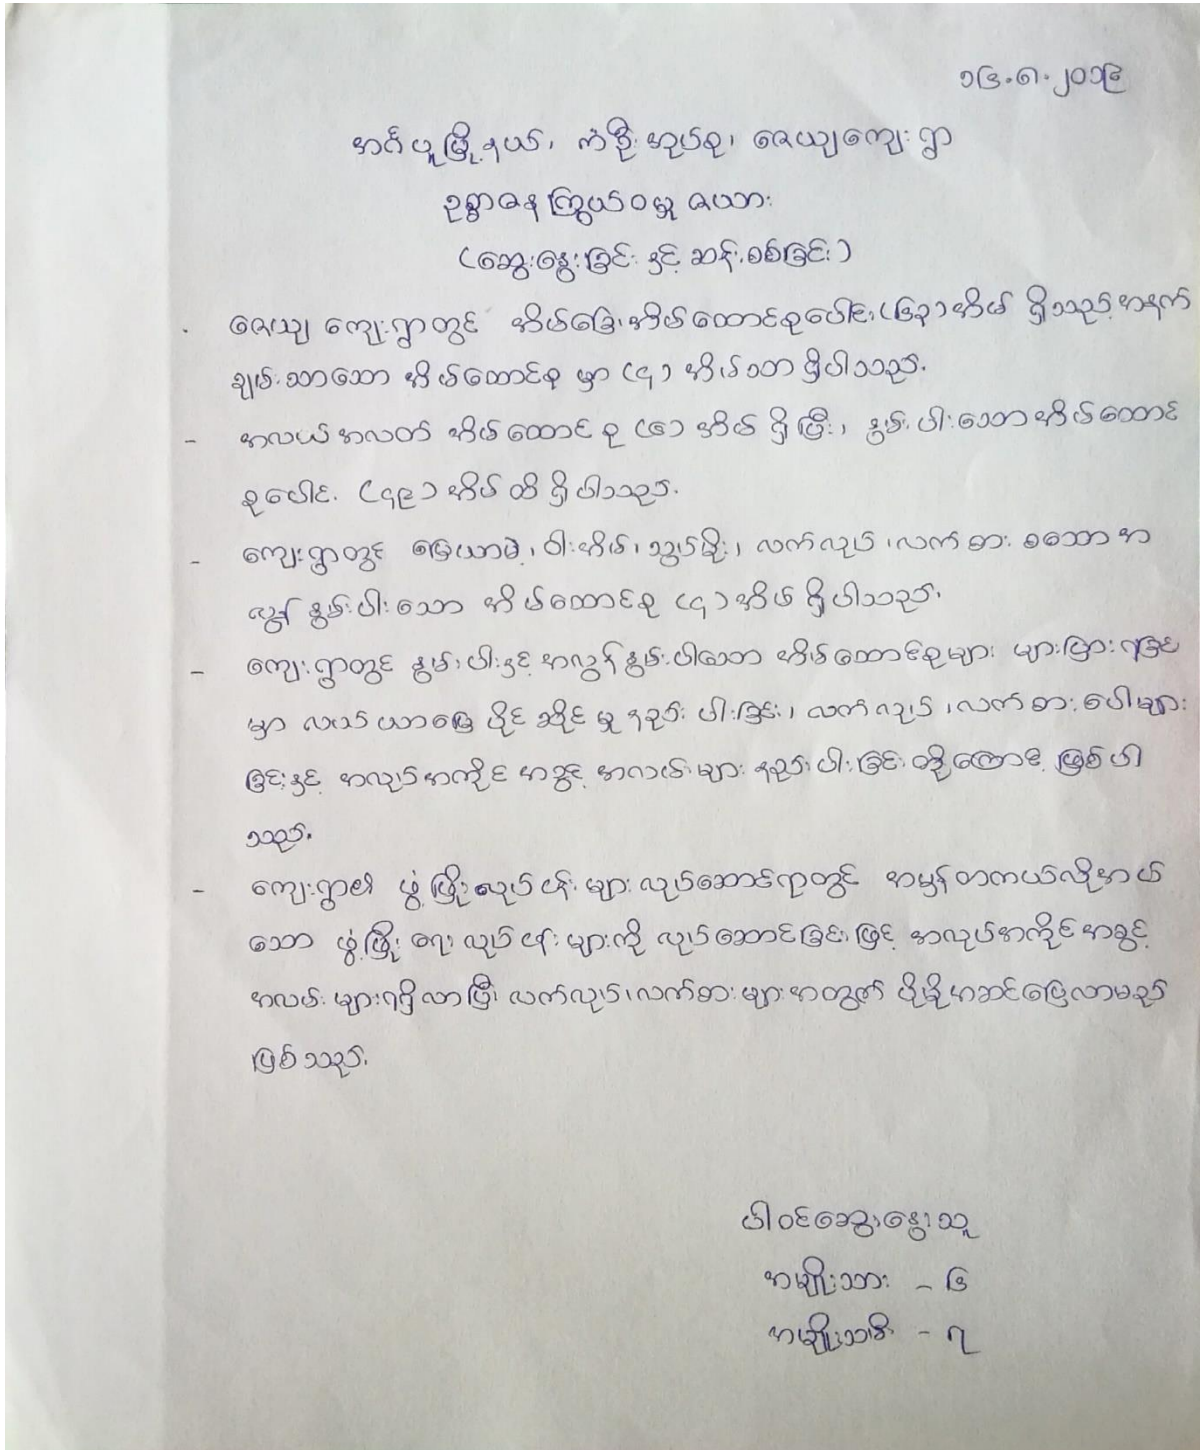 ၁၆.၈.၂၀၁၉
အင်္ဂပူမြို့နယ်၊ ကံဦးအုပ်စု၊ ဇေယျကျေးရွာ
ဥစ္စာဓန ကြွယ်ဝမှု ဇယား
(ဆွေးနွေးခြင်း နှင့် ဆန်းစစ်ခြင်း)
ဇေယျ ကျေးရွာတွင် အိမ်ခြေ၊ အိမ်ထောင်စုပေါင်း (၆၃) အိမ် ရှိသည့်အနက်
ချမ်းသာသော အိမ်ထောင်စု မှာ (၄) အိမ်သာ ရှိပါသည်။
- အလယ်အလတ် အိမ်ထောင် စု (၆) အိမ် ရှိပြီး၊ နွမ်းပါးသောအိမ်ထောင်
စုပေါင်း (၄၉) အိမ်ထိ ရှိပါသည်။
- ကျေးရွာတွင် မြေယာမဲ့၊ ဝါးအိမ်၊ သွပ်မိုး၊ လက်လုပ်၊ လက်စား စသော အ
လွန် နွမ်းပါးသော အိမ်ထောင်စု (၄) အိမ် ရှိပါသည်။
- ကျေးရွာတွင် နွမ်းပါးနှင့် အလွန်နွမ်းပါးသော အိမ်ထောင်စုများ များပြားရခြင်း
မှာ လယ်ယာမြေ ပိုင်ဆိုင်မှု နည်းပါးခြင်း၊ လက်လုပ်၊ လက်စား ပေါများ
ခြင်းနှင့် အလုပ်အကိုင် အခွင့် အလမ်းများ နည်းပါးခြင်း တို့ကြောင့် ဖြစ်ပါ
သည်။
- ကျေးရွာ၏ ဖွံ့ဖြိုးလုပ်ငန်းများ လုပ်ဆောင်ရာတွင် အမှန်တကယ်လိုအပ်
သော ဖွံ့ဖြိုးရေး လုပ်ငန်းများကို လုပ်ဆောင်ခြင်းဖြင့် အလုပ်အကိုင်အခွင့်
အလမ်းများရရှိလာပြီး လက်လုပ်၊ လက်စားများအတွက် ပိုမိုအဆင်ပြေလာမည်
ဖြစ်သည်။
ပါဝင်ဆွေးနွေးသူ
အမျိုးသား - ၆
အမျိုးသမီး - ၇